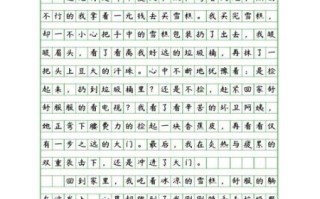 不行的我拿着一元钱去买雪糕。我买完雪糕,
却一不小心把手中的雪糕包装扔了出去,我皱
皱眉头,看了看离我好远的垃圾桶,再抹了一
把头上豆大的汗珠。心中不断地犹豫着:是捡
起来,扔到垃圾桶里?还是不捡,赶紧回家舒
舒服服的看电视?我看了看辛苦的环卫阿姨,
她正弯下腰费力的捡起一块香蕉皮,再看看仅
有一步之远的大门。最后,我在炎热与疲累的
双重夹击下,还是冲进了大门。
回到家里,我吃着冰凉的雪糕,舒服的躺